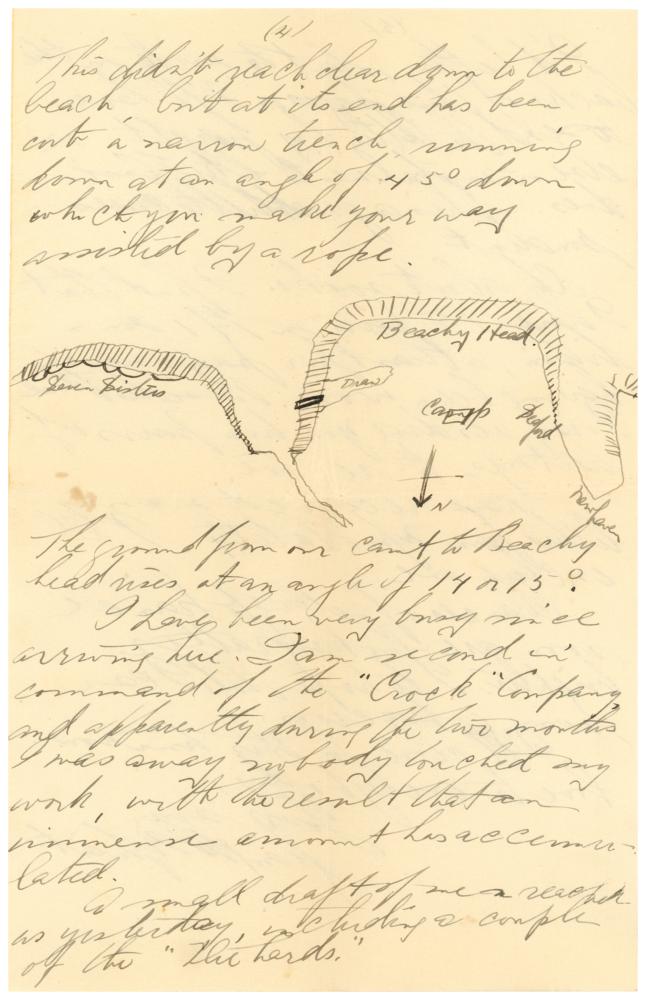 (4)
This didn't reach clear down to the
beach but at its end has been
cut a narrow trench, running
down at an angle of 45° down
which you make your way
assisted by a rope.
Beachy Head.
Seven Sisters
Draw
Camp
Seaford
N
Newhaven
The ground from our camp to Beachy
head rises at an angle of 14 or 15°.
I have been very busy since
arriving here. I am second in
command of the "Crock" Company,
and apparently during the two months
I was away nobody touched my
work, with the result that an
immense amount has accumu-
lated.
A small draft of men reached
us yesterday, including a couple
of the "Die hards."